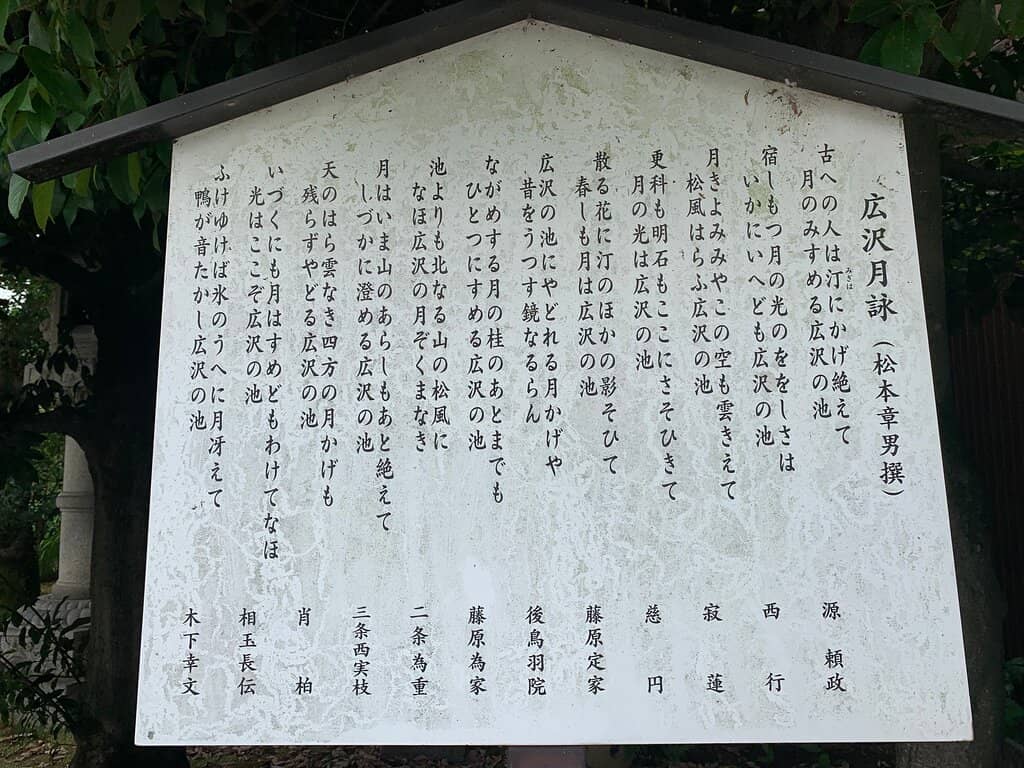 広沢月詠（松本章男撰）
古への人は汀にかげ絶えて
みぎは
月のみすめる広沢の池
源頼政
宿しもつ月の光のををしさは
いかにいへども広沢の池
西行
月きよみみやこの空も雲きえて
松風はらふ広沢の池
寂蓮
更科も明石もここにさそひきて
月の光は広沢の池
慈円
散る花に汀のほかの影そひて
春しも月は広沢の池
藤原定家
広沢の池にやどれる月かげや
昔をうつす鏡なるらん
後鳥羽院
ながめする月の桂のあとまでも
ひとつにすめる広沢の池
藤原為家
池よりも北なる山の松風に
なほ広沢の月ぞくまなき
二条為重
月はいま山のあらしもあと絶えて
しづかに澄める広沢の池
三条西実枝
天のはら雲なき四方の月かげも
残らずやどる広沢の池
肖柏
いづくにも月はすめどもわけてなほ
光はここぞ広沢の池
相玉長伝
ふけゆけば氷のうへに月冴えて
鴨が音たかし広沢の池
木下幸文